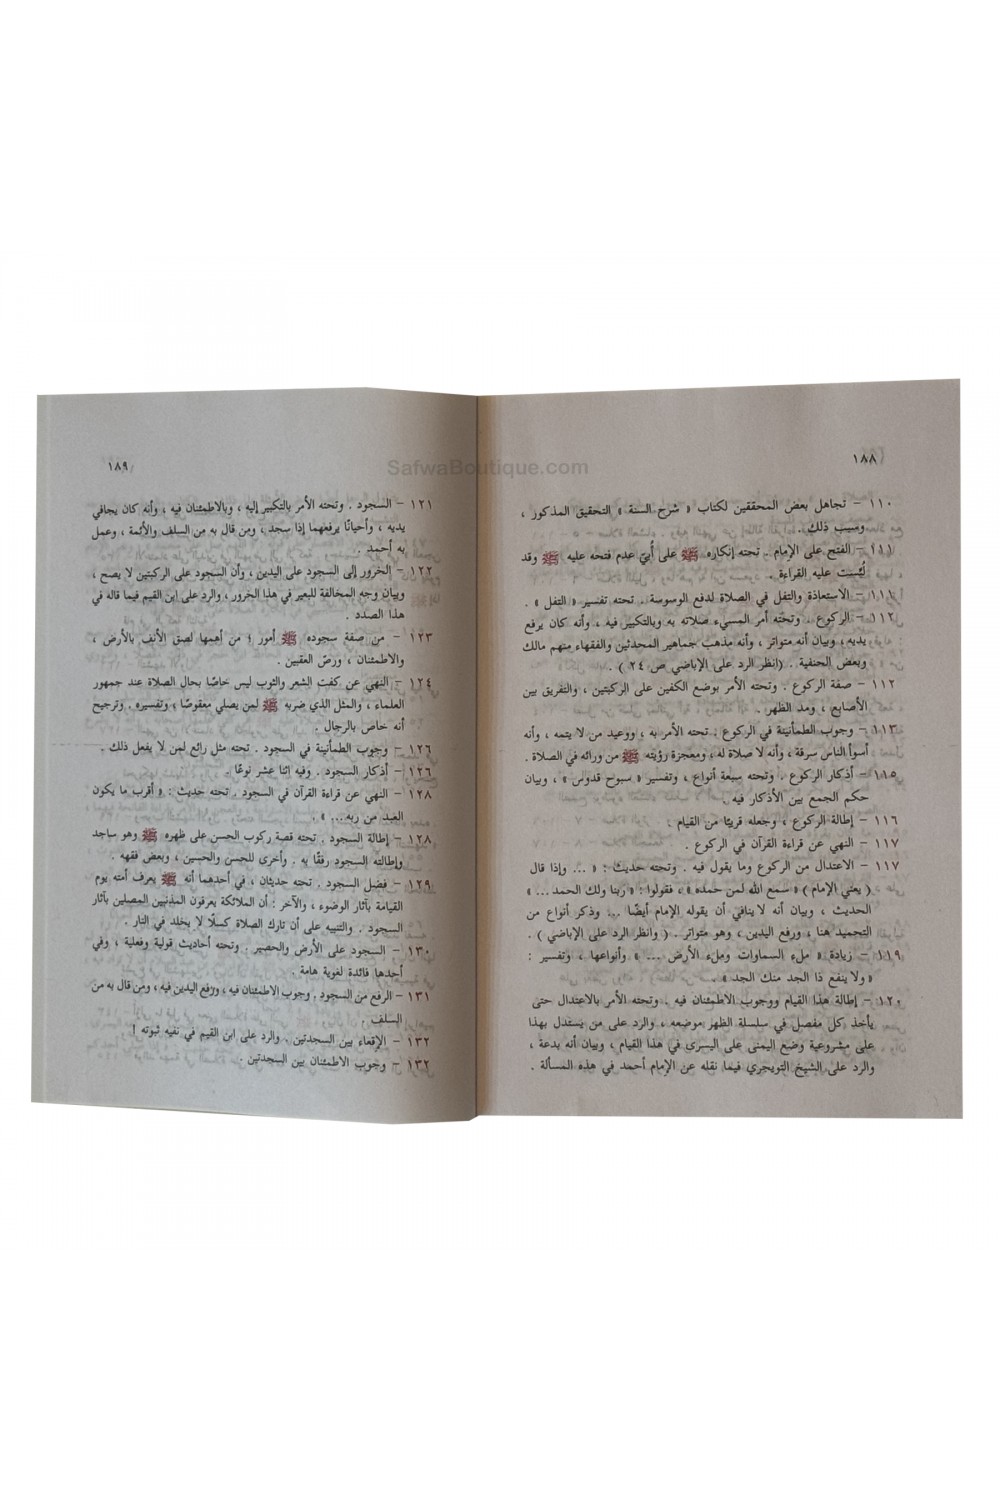 SafwaBoutique.com
١٨٨
١١٠ – تجاهل بعض المحققين لكتاب « شرح السنة » التحقيق المذكور ،
وسبب ذلك .
١١١ – الفتح على الإمام . تحته إنكاره ﷺ على أُبيّ عدم فتحه عليه ﷺ وقد
لُبّست عليه القراءة .
١١١ – الاستعاذة والتفل في الصلاة لدفع الوسوسة . تحته تفسير « التفل » .
١١٢ – الركوع . وتحته أمر المسيء صلاته به وبالتكبير فيه ، وأنه كان يرفع
يديه ، وبيان أنه متواتر ، وأنه مذهب جماهير المحدثين والفقهاء منهم مالك
وبعض الحنفية . (انظر الرد على الإباضي ص ٢٤ ) .
١١٢ – صفة الركوع . وتحته الأمر بوضع الكفين على الركبتين ، والتفريق بين
الأصابع ، ومد الظهر .
١١٣ – وجوب الطمأنينة في الركوع . تحته الأمر به ، ووعيد من لا يتمه ، وأنه
أسوأ الناس سرقة ، وأنه لا صلاة له ، ومعجزة رؤيته ﷺ من ورائه في الصلاة .
١١٥ – أذكار الركوع . وتحته سبعة أنواع ، وتفسير « سبوح قدوس » ، وبيان
حكم الجمع بين الأذكار فيه .
١١٦ – إطالة الركوع ، وجعله قريبًا من القيام .
١١٧ – النهي عن قراءة القرآن في الركوع .
١١٧ – الاعتدال من الركوع وما يقول فيه . وتحته حديث : « ... وإذا قال
( يعني الإمام ) « سمع الله لمن حمده » ، فقولوا : « ربنا ولك الحمد ... »
الحديث ، وبيان أنه لا ينافي أن يقوله الإمام أيضًا ... وذكر أنواع من
التحميد هنا ، ورفع اليدين ، وهو متواتر . ( وانظر الرد على الإباضي ) .
١١٩ – زيادة « ملء السماوات وملء الأرض ... » وأنواعها ، وتفسير :
« ولا ينفع ذا الجد منك الجد » .
١٢٠ – إطالة هذا القيام ووجوب الاطمئنان فيه . وتحته الأمر بالاعتدال حتى
يأخذ كل مفصل في سلسلة الظهر موضعه ، والرد على من يستدل بهذا
على مشروعية وضع اليمنى على اليسرى في هذا القيام ، وبيان أنه بدعة ،
والرد على الشيخ التويجري فيما نقله عن الإمام أحمد في هذه المسألة .
١٨٩
١٢١ – السجود . وتحته الأمر بالتكبير إليه ، وبالاطمئنان فيه ، وأنه كان يجافي
يديه ، وأحيانًا يرفعهما إذا سجد ، ومن قال به من السلف والأئمة ، وعمل
به أحمد .
١٢٢ – الخرور إلى السجود على اليدين ، وأن السجود على الركبتين لا يصح ،
وبيان وجه المخالفة للبعير في هذا الخرور ، والرد على ابن القيم فيما قاله في
هذا الصدد .
١٢٣ – من صفة سجوده ﷺ أمور ؛ من أهمها لصق الأنف بالأرض ،
والاطمئنان ، ورصّ العقبين .
١٢٤ – النهي عن كفت الشعر والثوب ليس خاصًا بحال الصلاة عند جمهور
العلماء ، والمثل الذي ضربه ﷺ لمن يصلي معقوصًا ، وتفسيره . وترجيح
أنه خاص بالرجال .
١٢٦ – وجوب الطمأنينة في السجود . تحته مثل رائع لمن لا يفعل ذلك .
١٢٦ – أذكار السجود . وفيه اثنا عشر نوعًا .
١٢٨ – النهي عن قراءة القرآن في السجود . تحته حديث : « أقرب ما يكون
العبد من ربه ... » .
١٢٨ – إطالة السجود . تحته قصة ركوب الحسن على ظهره ﷺ وهو ساجد
وإطالته السجود رفقًا به . وأخرى للحسن والحسين ، وبعض فقهه .
١٢٩ – فضل السجود . تحته حديثان ، في أحدهما أنه ﷺ يعرف أمته يوم
القيامة بآثار الوضوء ، والآخر : أن الملائكة يعرفون المذنبين المصلين بآثار
السجود . والتنبيه على أن تارك الصلاة كسلًا لا يخلد في النار .
١٣٠ – السجود على الأرض والحصير . وتحته أحاديث قولية وفعلية ، وفي
أحدها فائدة لغوية هامة .
١٣١ – الرفع من السجود . وجوب الاطمئنان فيه ، ورفع اليدين فيه ، ومن قال به من
السلف .
١٣٢ – الإقعاء بين السجدتين . والرد على ابن القيم في نفيه ثبوته !
١٣٢ – وجوب الاطمئنان بين السجدتين .